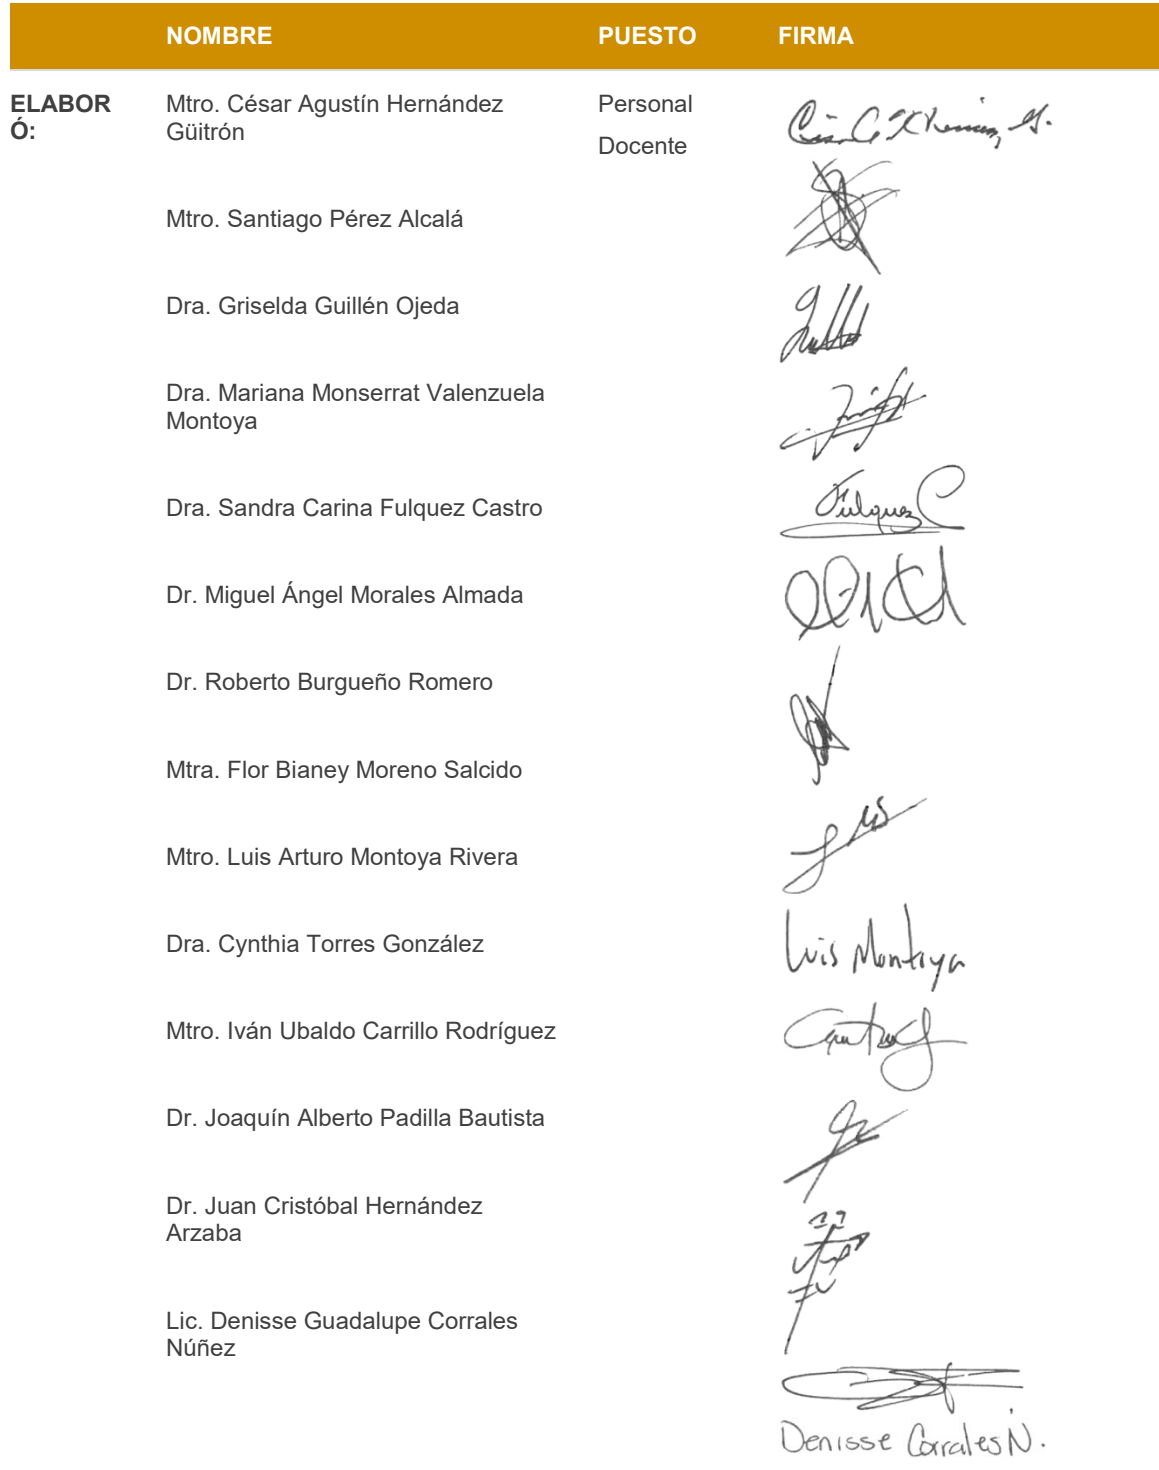 NOMBRE PUESTO FIRMA
ELABOR
Ó:
Mtro. César Agustín Hernández
Güitrón
Personal
Docente
Mtro. Santiago Pérez Alcalá
Dra. Griselda Guillén Ojeda
Dra. Mariana Monserrat Valenzuela
Montoya
Dra. Sandra Carina Fulquez Castro
Fulquez C
Dr. Miguel Ángel Morales Almada
Dr. Roberto Burgueño Romero
Mtra. Flor Bianey Moreno Salcido
Mtro. Luis Arturo Montoya Rivera
Dra. Cynthia Torres González
Luis Montoya
Mtro. Iván Ubaldo Carrillo Rodríguez
Dr. Joaquín Alberto Padilla Bautista
Dr. Juan Cristóbal Hernández
Arzaba
Lic. Denisse Guadalupe Corrales
Núñez
Denisse Corrales N.